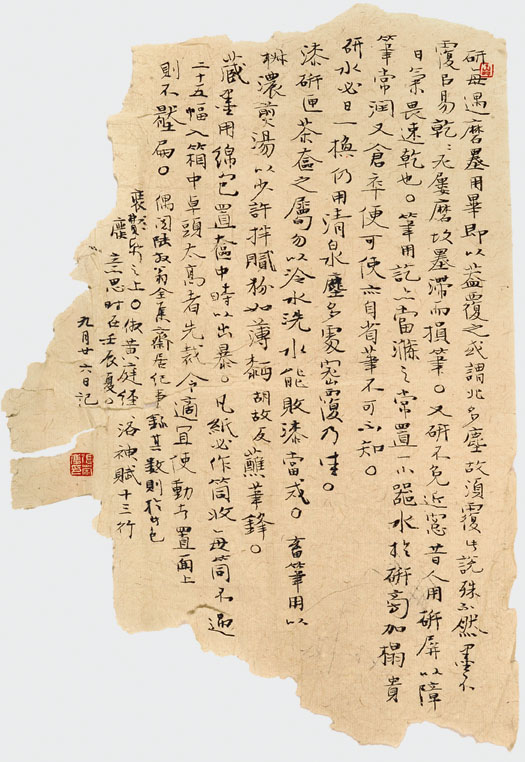 研每遇磨墨用畢即以蓋覆之或謂北多塵故須覆此說殊不然墨不
覆即易乾。尤屢磨故墨滯而損筆。又研不免近窗昔人用研屏以障
日氣畏速乾也。筆用訖亦當滌之常置小器水於研旁加榻貴
筆常潤又倉卒便可使亦自省筆不可不知。
研水必日一換仍用清泉塵多處密覆乃佳。
漆研匣茶奩之屬勿以冷水洗水能敗漆當戒。畜筆用以
椒濃煎湯以少許拌膩粉如薄黏糊故反蘸筆鋒。
藏墨用綿包置奩中時以出暴。凡紙必作筒收每筒不過
二十五幅入箱中卓頭太高者先裁令適宜便動与置面上
則不壓扁。偶閱陸放翁全集齋居紀事錄其數則於
之上〇倣黃庭經 洛神賦十三行
塵 思時在壬辰夏。
九月廿六日記